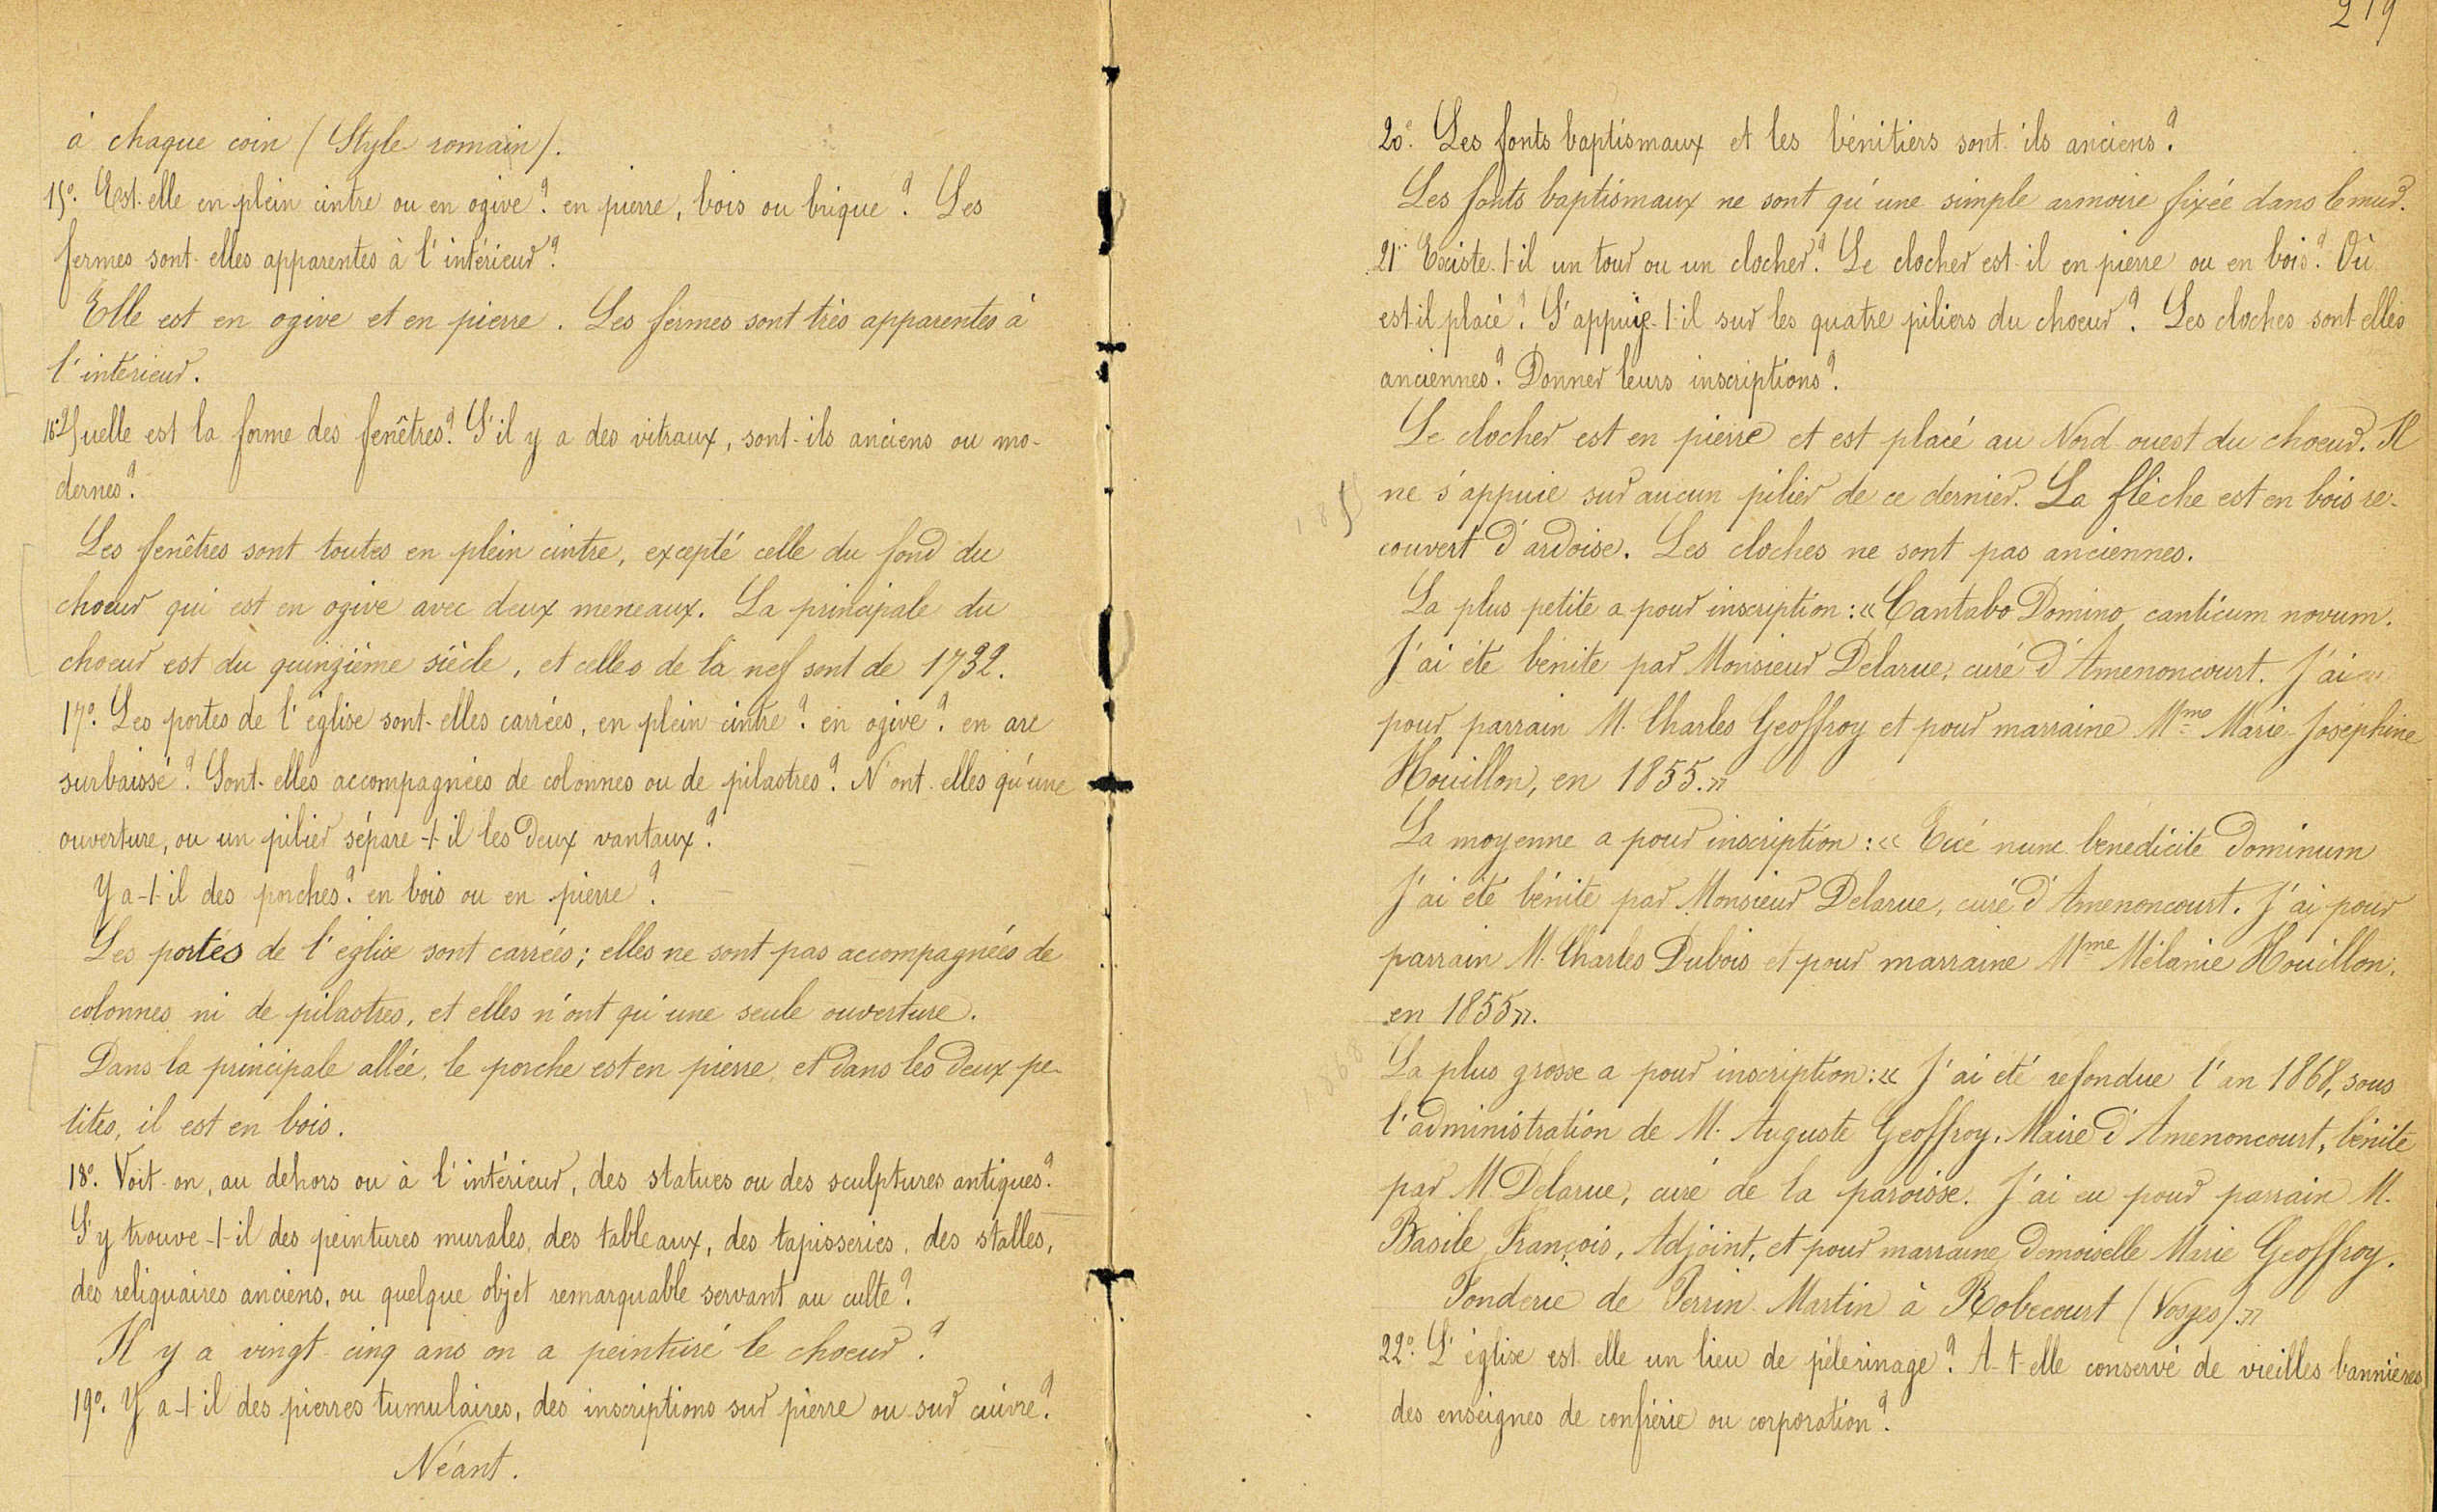 à chaque coin (Style romain).
15°. Est-elle en plein cintre ou en ogive? en pierre, bois ou brique? Les
fermes sont-elles apparentes à l'intérieur?
Elle est en ogive et en pierre. Les fermes sont très apparentes à
l'intérieur.
16° Quelle est la forme des fenêtres? S'il y a des vitraux, sont-ils anciens ou mo-
dernes?
Les fenêtres sont toutes en plein cintre, excepté celle du fond du
choeur qui est en ogive avec deux meneaux. La principale du
choeur est du quinzième siècle, et celles de la nef sont de 1732.
17°. Les portes de l'église sont-elles carrées, en plein cintre? en ogive? en arc
surbaissé? Sont-elles accompagnées de colonnes ou de pilastres? N'ont-elles qu'une
ouverture, ou un pilier sépare-t-il les deux vantaux?
Y a-t-il des porches? en bois ou en pierre?
Les portes de l'église sont carrées; elles ne sont pas accompagnées de
colonnes ni de pilastres, et elles n'ont qu'une seule ouverture.
Dans la principale allée, le porche est en pierre, et dans les deux pe-
tites, il est en bois.
18°. Voit-on, au dehors ou à l'intérieur, des statues ou des sculptures antiques?
S'y trouve-t-il des peintures murales, des tableaux, des tapisseries, des stalles,
des reliquaires anciens, ou quelque objet remarquable servant au culte?
Il y a vingt-cinq ans on a peinturé le choeur?
19°. Y a-t-il des pierres tumulaires, des inscriptions sur pierre ou sur cuivre?
Néant.
219
20°. Les fonts baptismaux et les bénitiers sont-ils anciens?
Les fonts baptismaux ne sont qu'une simple armoire fixée dans le mur.
21° Existe-t-il un tour ou un clocher? Le clocher est-il en pierre ou en bois? Où
est-il placé? S'appuie-t-il sur les quatre piliers du choeur? Les cloches sont-elles
anciennes? Donner leurs inscriptions?
Le clocher est en pierre et est placé au Nord-ouest du choeur. Il
ne s'appuie sur aucun pilier de ce dernier. La flèche est en bois re-
couvert d'ardoise. Les cloches ne sont pas anciennes.
La plus petite a pour inscription: « Cantabo Domino canticum novum.
J'ai été bénite par Monsieur Delarue, curé d'Amenoncourt. J'ai
pour parrain M. Charles Geoffroy et pour marraine Mme Marie-Joséphine
Houillon, en 1855. »
La moyenne a pour inscription: « Eccé nunc benedicite Dominum
J'ai été bénite par Monsieur Delarue, curé d'Amenoncourt. J'ai pour
parrain M. Charles Dubois et pour marraine Mme Mélanie Houillon.
en 1855 ».
La plus grosse a pour inscription: « J'ai été refondue l'an 1868, sous
l'administration de M. Auguste Geoffroy, Maire d'Amenoncourt, bénite
par M. Delarue, curé de la paroisse. J'ai eu pour parrain M.
Basile François, Adjoint, et pour marraine demoiselle Marie Geoffroy.
Fonderie de Perrin-Martin à Robecourt (Vosges). »
22°. L'église est-elle un lieu de pélerinage? A-t-elle conservé de vieilles bannières
des enseignes de confrérie ou corporation?